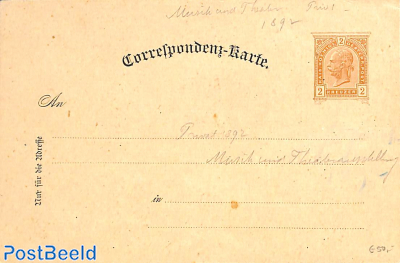 Musik und Theater Privat
1892
Correspondenz-Karte.
2
2 KREUZER 2
An
Privat 1892
Musik und Theaterausstellung
Nur für die Adresse
in
€50,-
PostBeeld